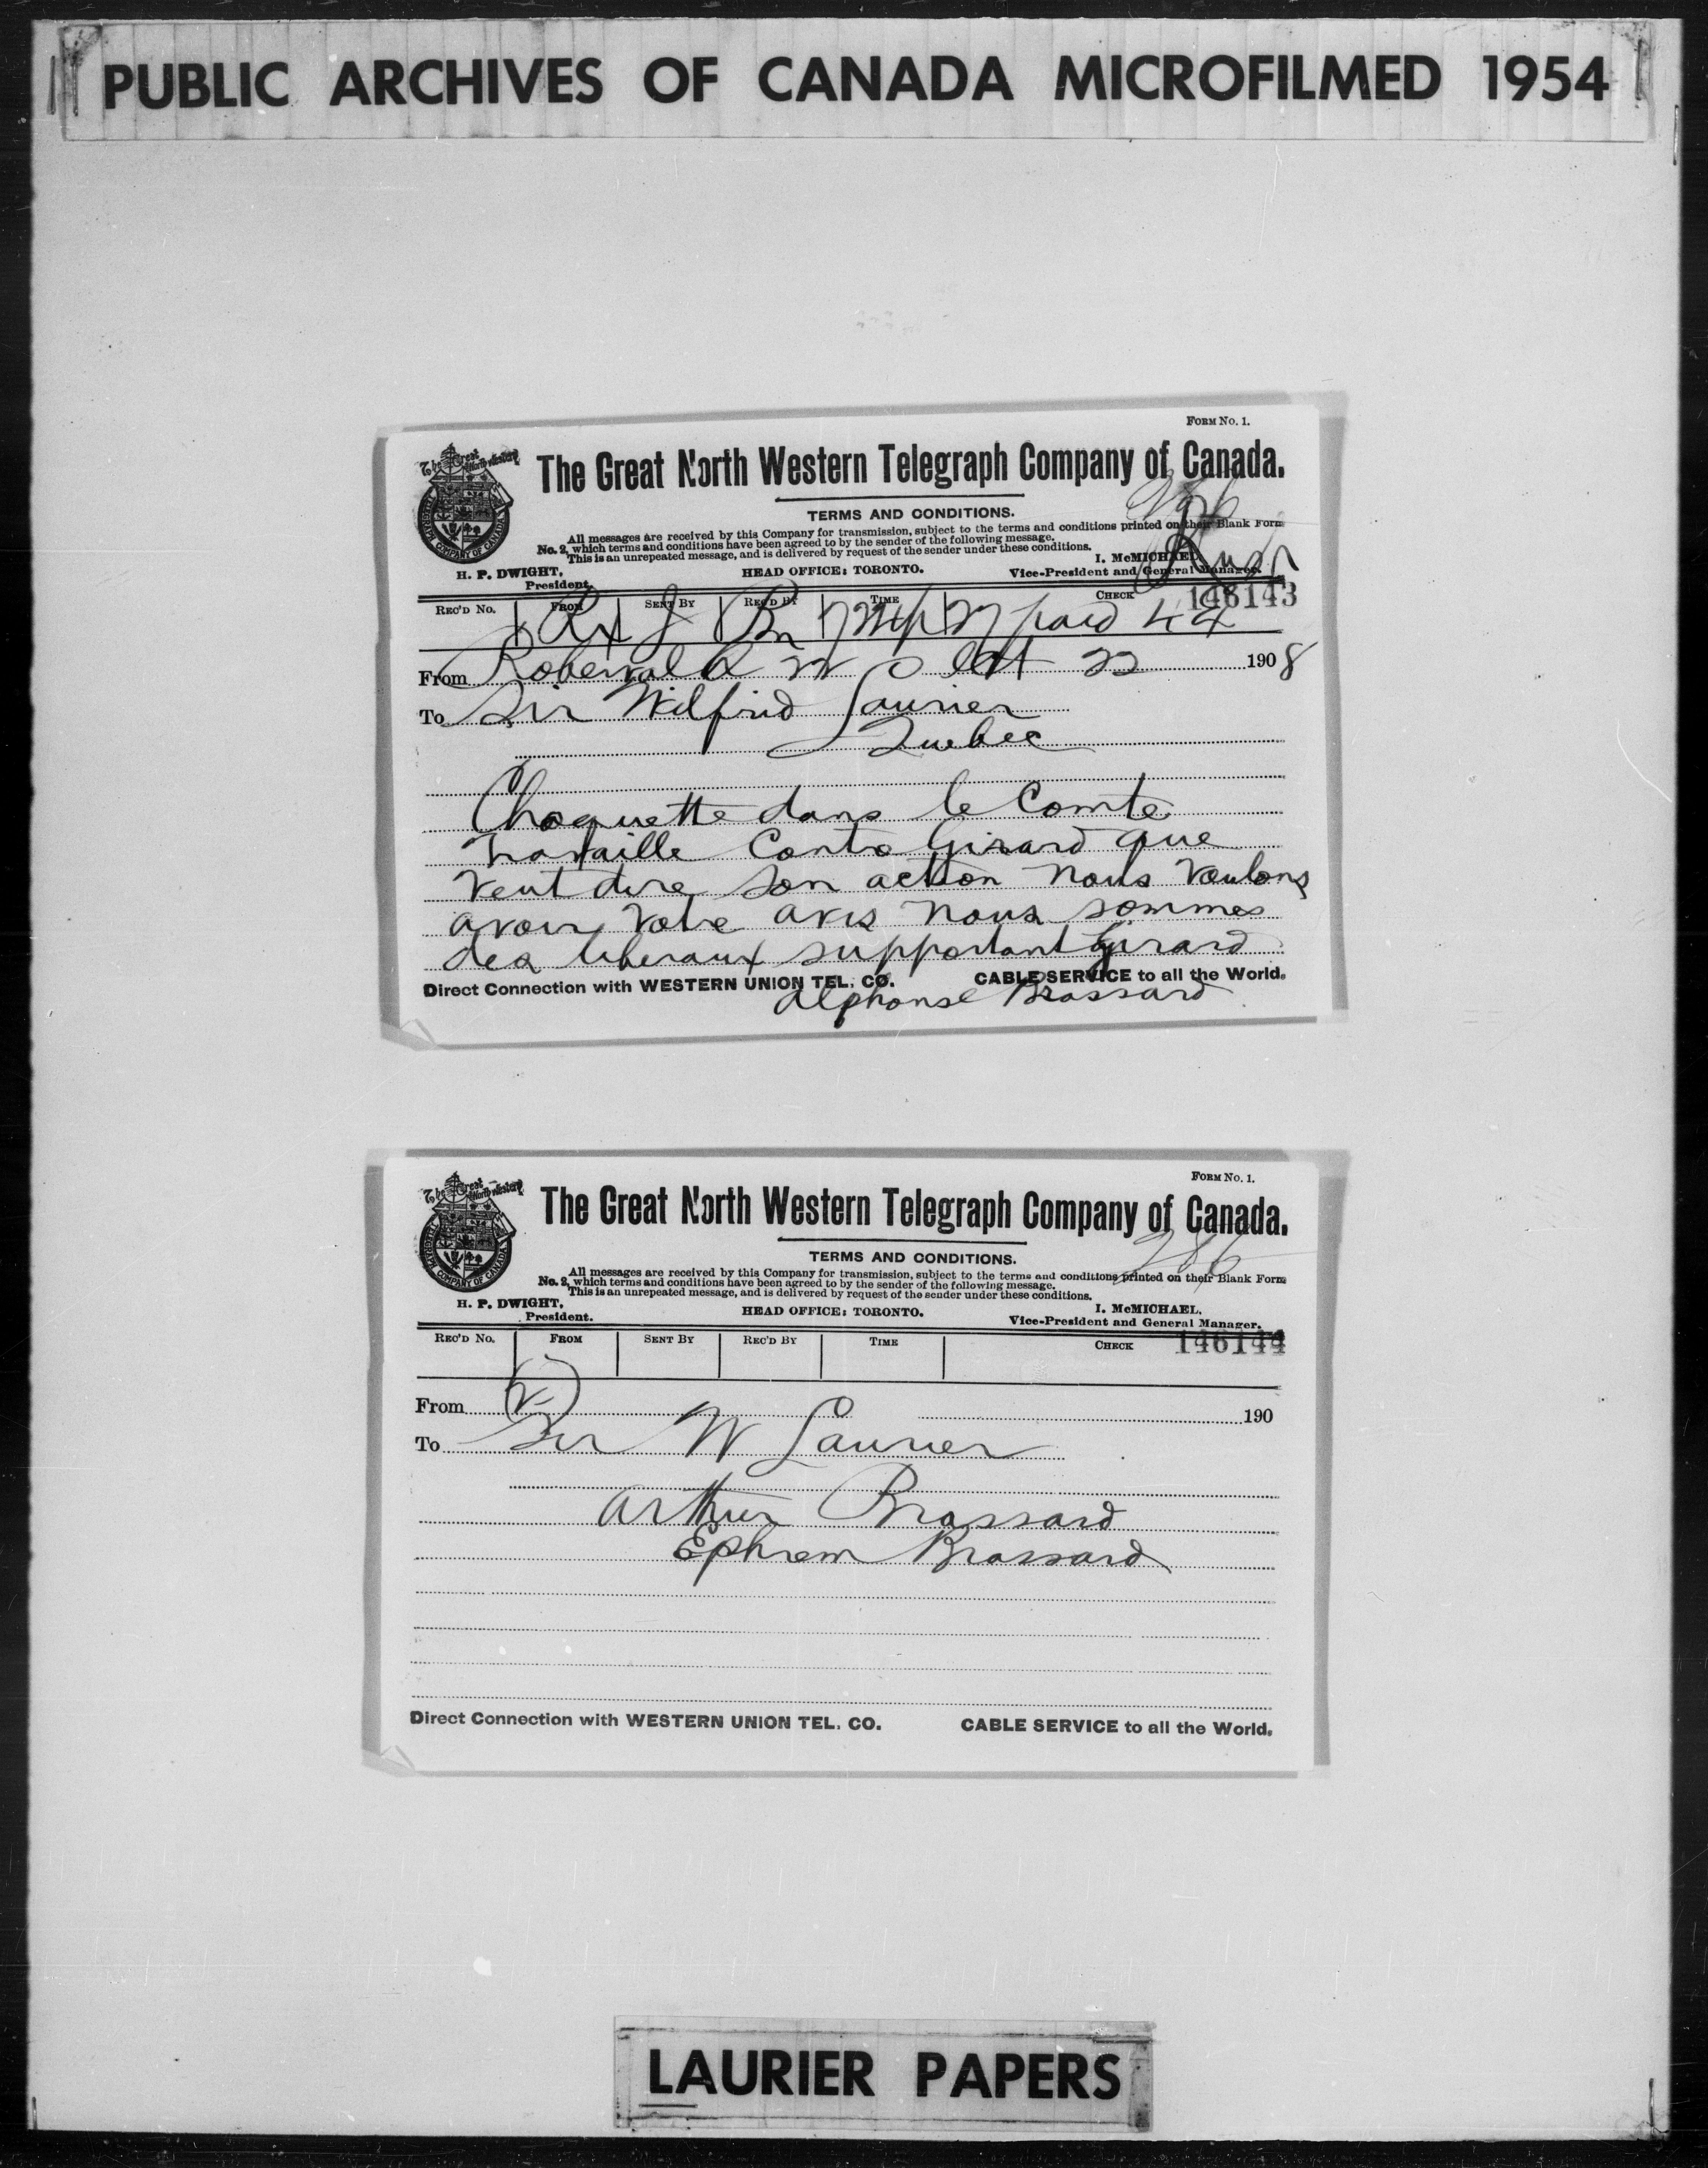 PUBLIC ARCHIVES OF CANADA MICROFILMED 1954
FORM No. 1.
The Great North Western Telegraph Company of Canada.
TERMS AND CONDITIONS.
All messages are received by this Company for transmission, subject to the terms and conditions printed on their Blank Form
No. 2, which terms and conditions have been agreed to by the sender of the following message.
This is an unrepeated message, and is delivered by request of the sender under these conditions.
H. P. DWIGHT, President.
HEAD OFFICE: TORONTO.
I. McMICHAEL, Vice-President and General Manager.
146143
REC'D No. FROM SENT BY REC'D BY TIME CHECK
27 paid 44
From Roberval Oct 22 1908
To Sir Wilfrid Laurier
Quebec
Choquette dans le Comte
travaille Contre Girard que
veut dire son action nous voulons
avoir votre avis nous sommes
des liberaux supportant Girard
Direct Connection with WESTERN UNION TEL. CO. CABLE SERVICE to all the World.
Alphonse Brassard
FORM No. 1.
The Great North Western Telegraph Company of Canada.
286
TERMS AND CONDITIONS.
All messages are received by this Company for transmission, subject to the terms and conditions printed on their Blank Form
No. 2, which terms and conditions have been agreed to by the sender of the following message.
This is an unrepeated message, and is delivered by request of the sender under these conditions.
H. P. DWIGHT, President.
HEAD OFFICE: TORONTO.
I. McMICHAEL, Vice-President and General Manager.
146144
REC'D No. FROM SENT BY REC'D BY TIME CHECK
From (2) 190
To Sir W Laurier
Arthur Brassard
Ephrem Brassard
Direct Connection with WESTERN UNION TEL. CO. CABLE SERVICE to all the World.
LAURIER PAPERS